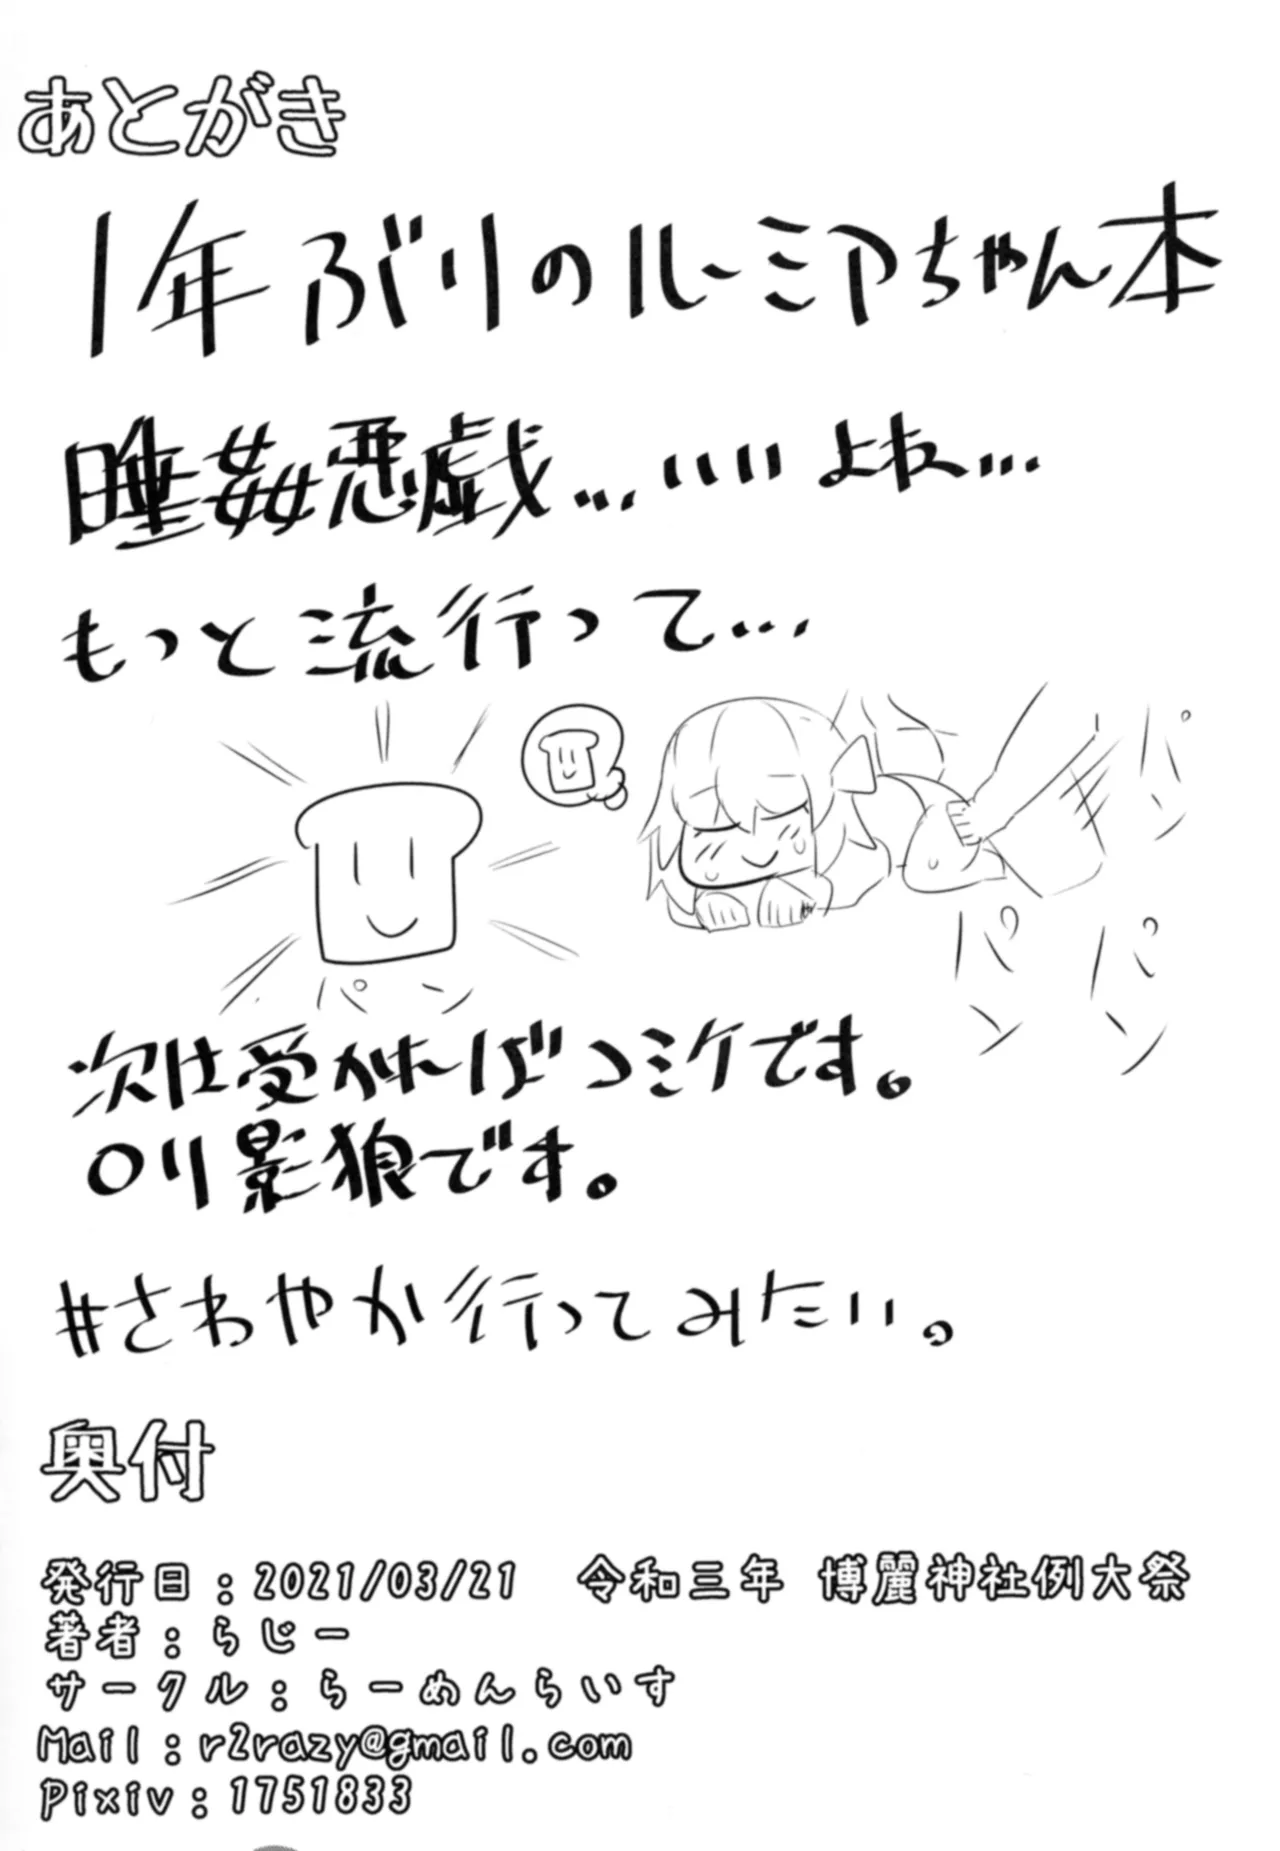 あとがき
1年ぶりのルーミアちゃん本
睡姦悪戯…いいよね…
もっと流行って…
パン
パン
パン
パン
次は受かればコミケです。
ロリ影狼です。
#さわやか行ってみたい。
奥付
発行日：2021/03/21 令和三年 博麗神社例大祭
著者：らじー
サークル：らーめんらいす
Mail：r2razy@gmail.com
Pixiv：1751833